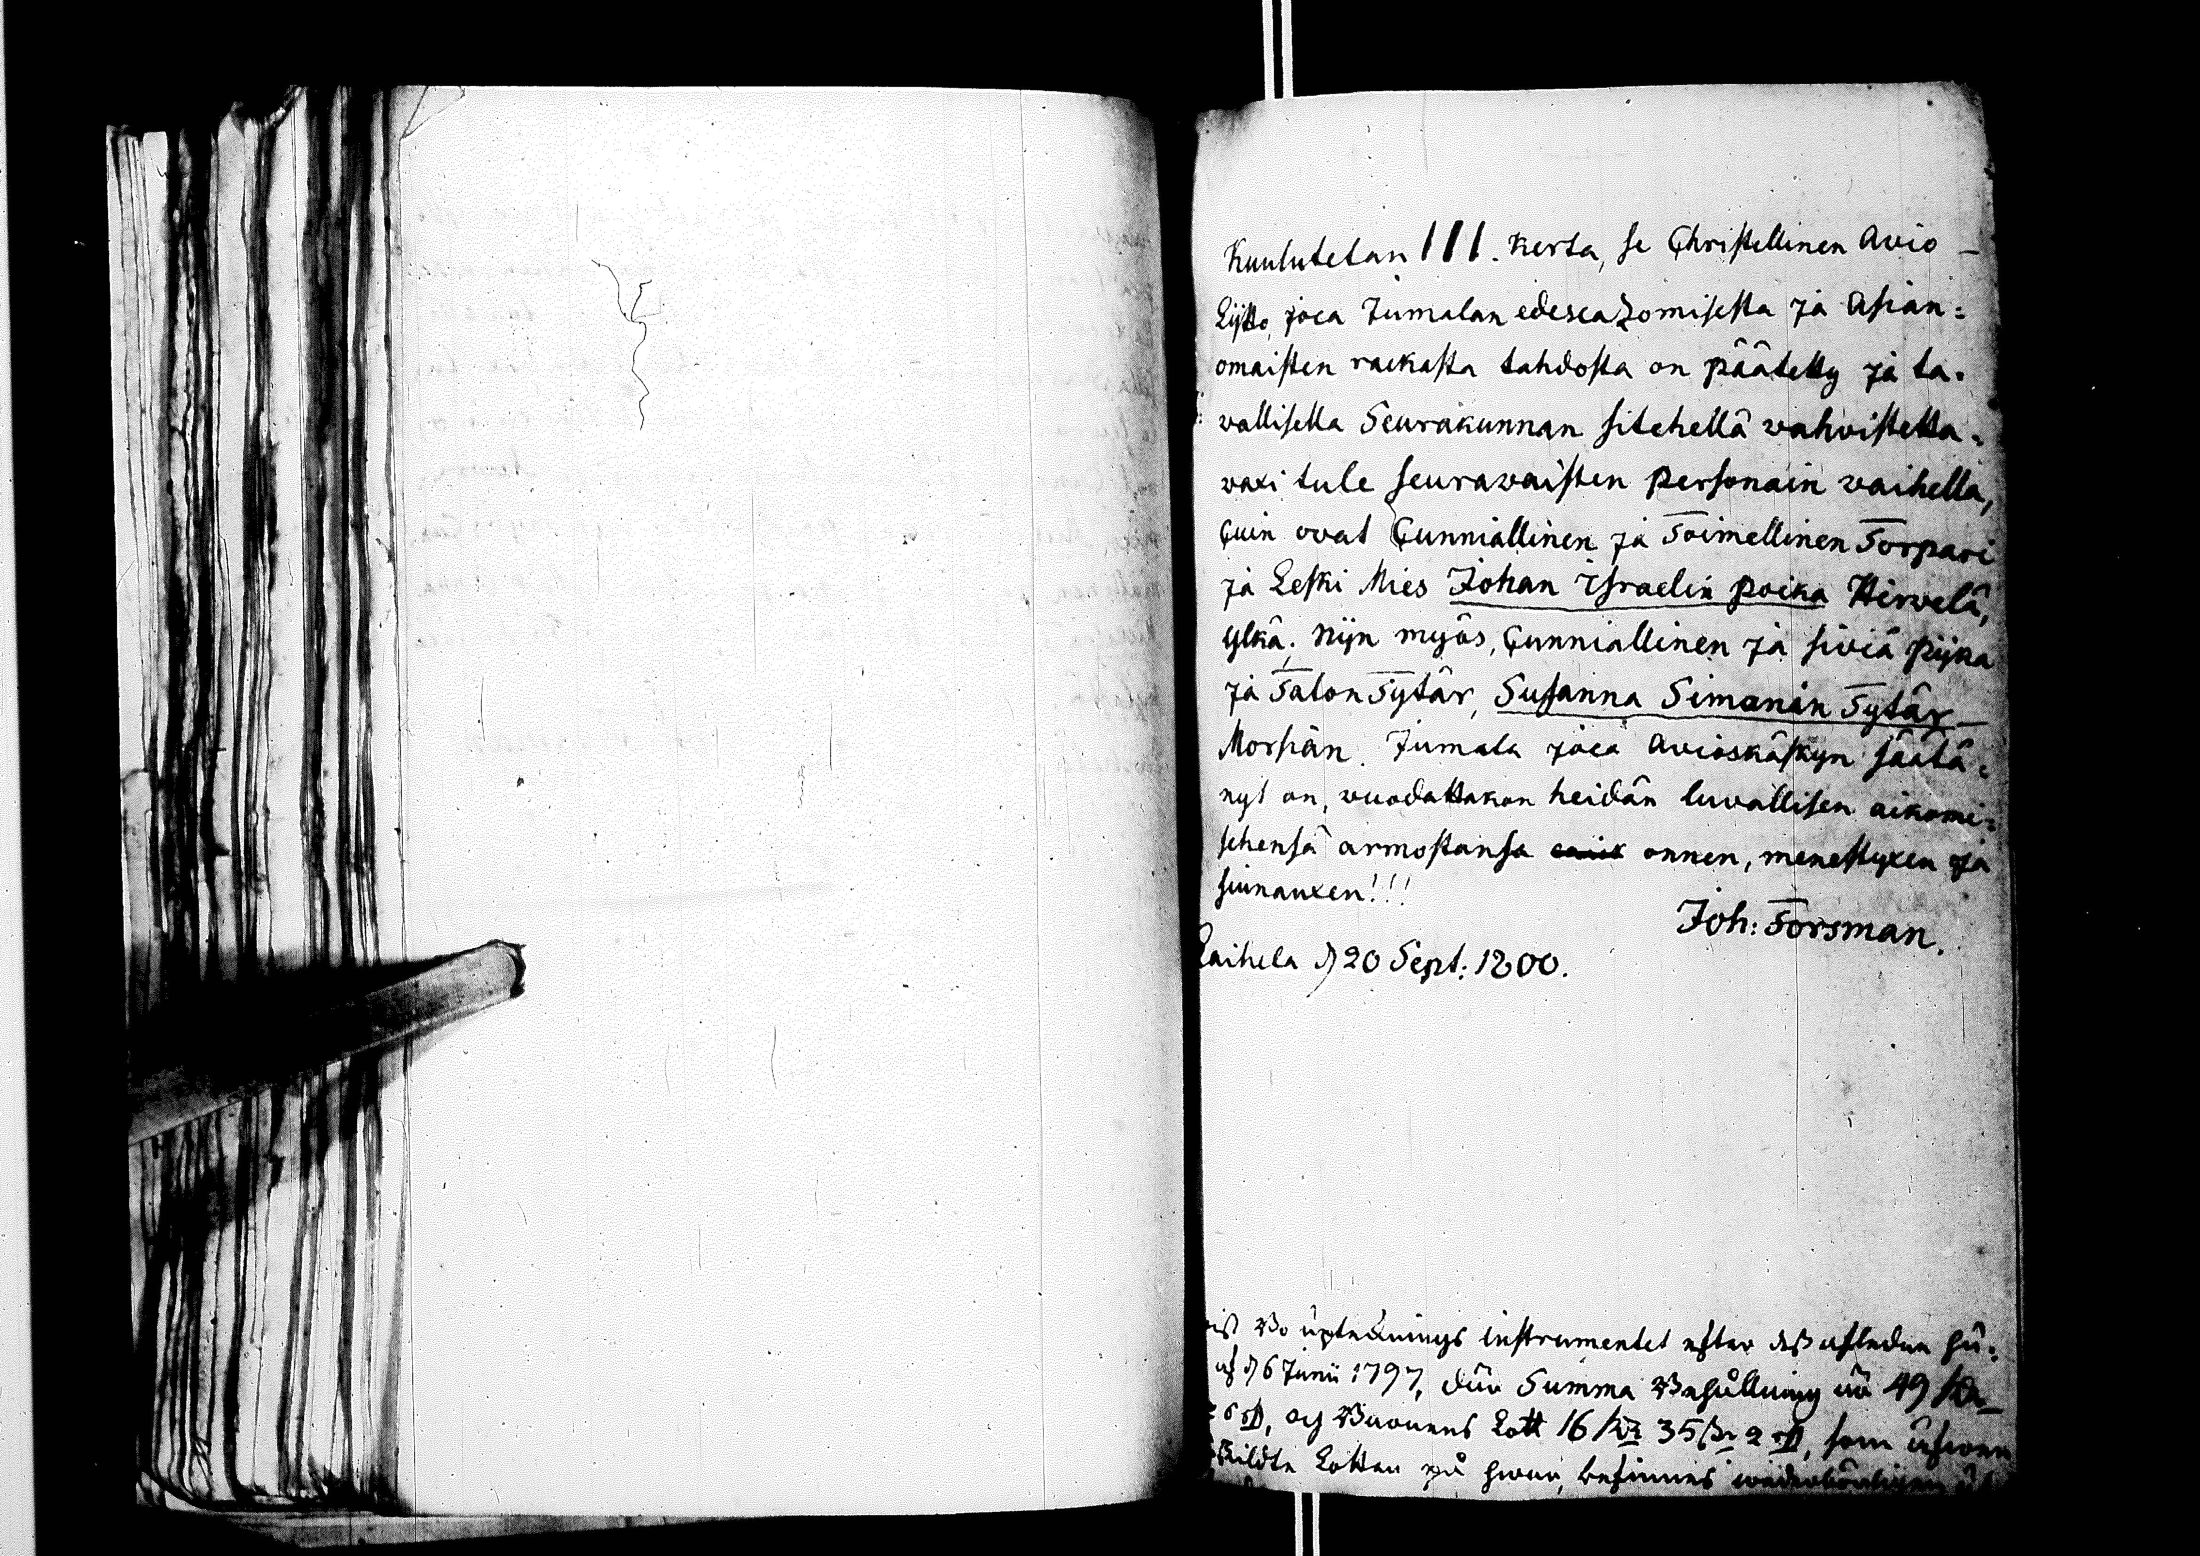 Kuulutetan III. Kerta, se Christellinen Avio-
Lijtto, joca Jumalan edescazomisesta ja Asian=
omaisten rackasta tahdosta on päätetty ja ta=
vallisella Seurakunnan sitehellä wahvistetta=
waxi tule seurawaisten Personain waihella,
Cuin ovat Cunniallinen ja Toimellinen Torpari
ja Leski Mies Johan Israelin poika Hirvelä,
Ylkä; Nijn myös, Cunniallinen ja siviä pijka
ja Talon Tytär, Susanna Simonin Tytär –
Morsian. Jumala joca Avioskäskyn säätä=
nyt on, vuodattakon heidän luvallisen aikomi=
sehensa armostansa onnen, menestyxen ja
siunauxen!!!
Joh: Forsman.
Laihela d. 20 Sept: 1800.
Bo upteknings instrumentet efter des afledne
af d 6 Junii 1797, där Summa Behållning är 49
6, och Barnens Lott 16 35 2, som
Lotten på hvar, befinnes